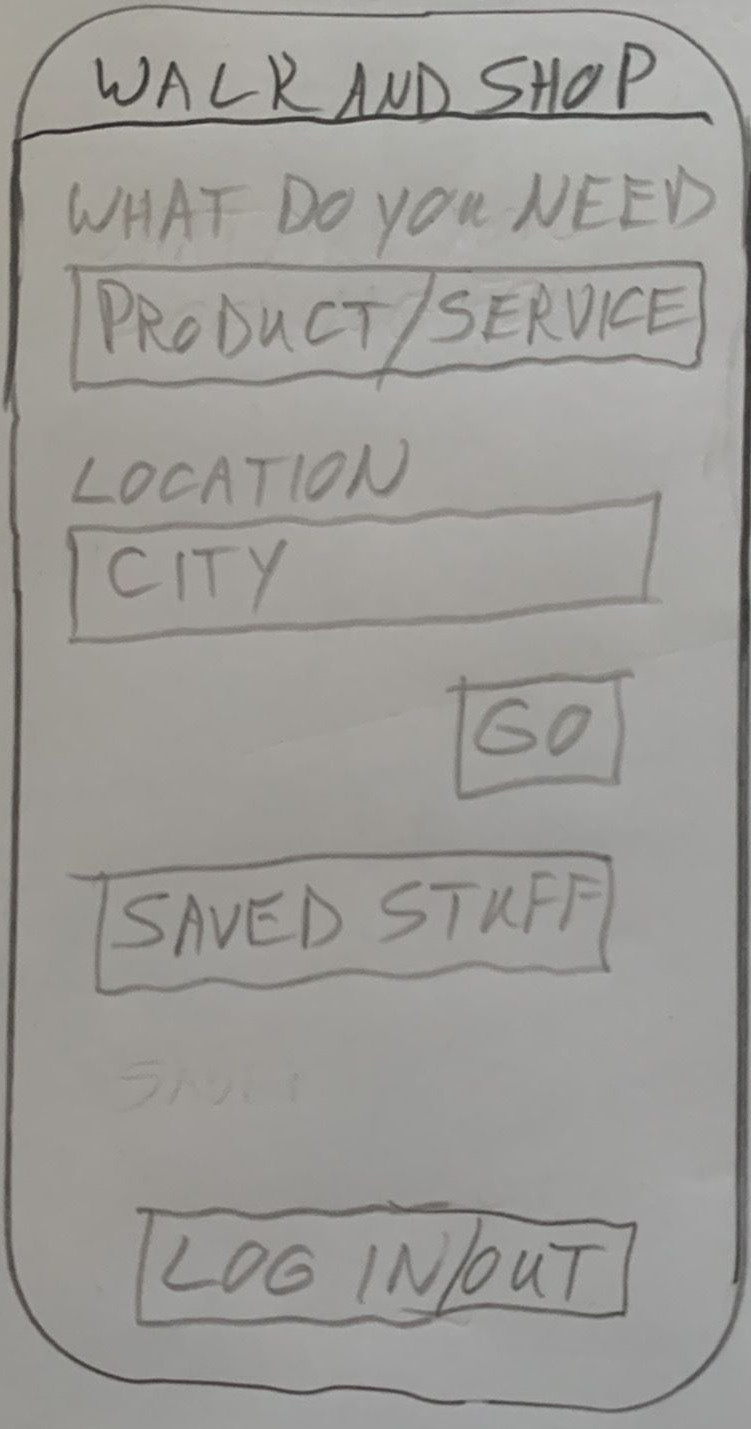 WALK AND SHOP
WHAT DO you NEED
PRODUCT/SERVICE
LOCATION
CITY
GO
SAVED STUFF
LOG IN/OUT